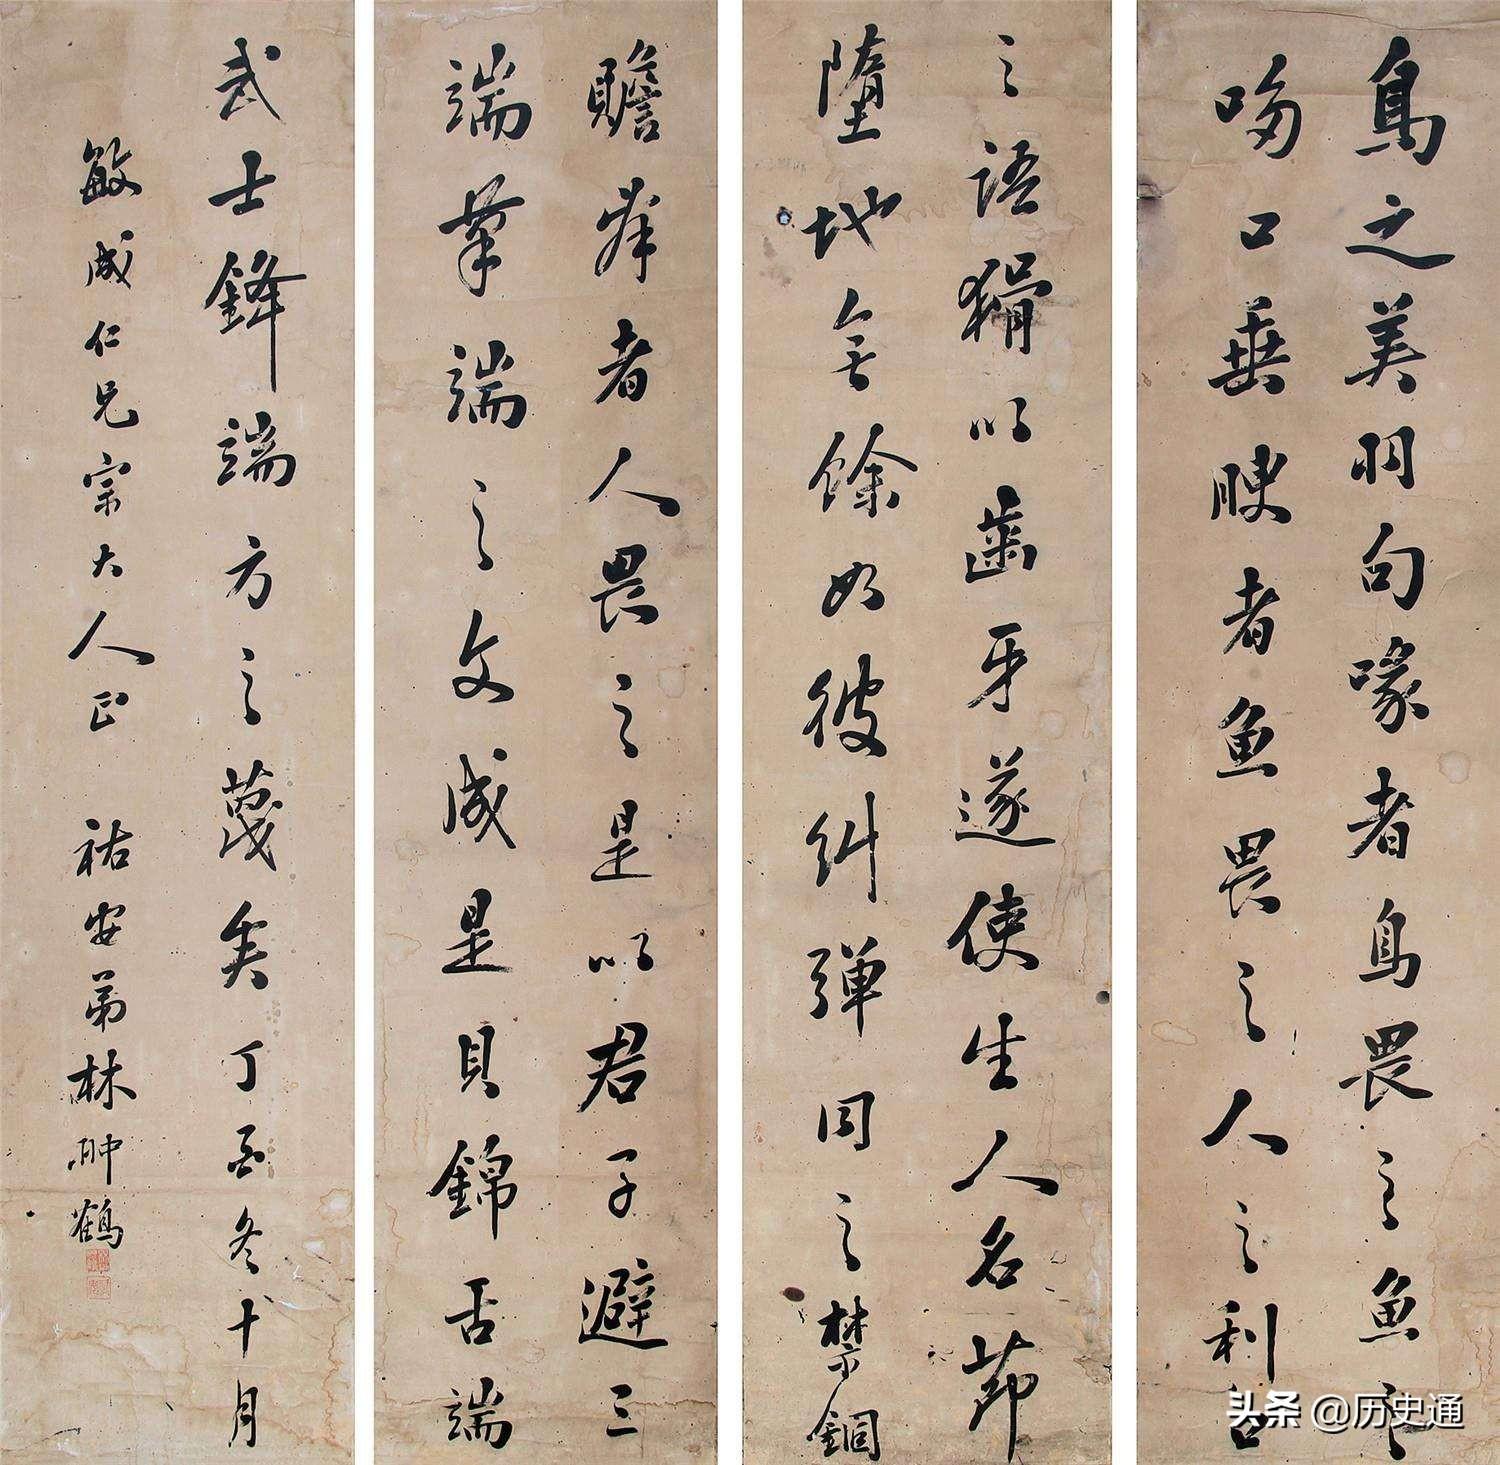 鳥之美羽句喙者鳥畏之魚之
哆口垂腴者魚畏之人之利口
之語猾以齒牙遂使生人名節
墮地無餘如彼糾彈同之禁錮
贍辭者人畏之是以君子避三
端筆端之文成是貝錦舌端
武士鋒端方之蔑矣丁酉冬十月
敏成仁兄宗大人正 祐安弟林翀鶴
头条 @历史通